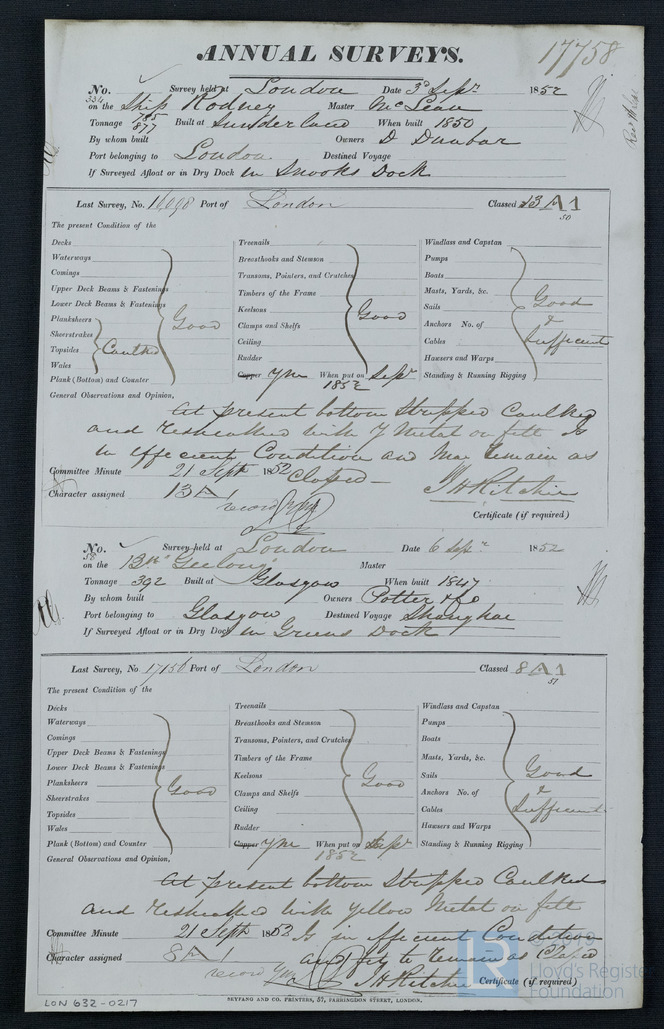 ANNUAL SURVEYS.
17758
No. 334 Survey held at London Date 3d Sepr 1852
on the Ship Rodney Master McLean
Tonnage 785 877 Built at Sunderland When built 1850
By whom built Owners D Dunbar
Port belonging to London Destined Voyage
If Surveyed Afloat or in Dry Dock in Snooks Dock
Last Survey, No. 16098 Port of London Classed 13 A1 50
The present Condition of the
Decks Treenails Windlass and Capstan
Waterways Breasthooks and Stemson Pumps
Comings Transoms, Pointers, and Crutches Boats
Upper Deck Beams & Fastenings Timbers of the Frame Masts, Yards, &c.
Lower Deck Beams & Fastenings Good Keelsons Good Sails Good
Planksheers Clamps and Shelfs Anchors No. of &
Sheerstrakes Ceiling Cables Sufficient
Topsides Caulked Rudder Hawsers and Warps
Wales Copper YM When put on Sepr 1852 Standing & Running Rigging
Plank (Bottom) and Counter
General Observations and Opinion,
At present bottom Stripped Caulked
and resheathed with Y Metal on felt Is
in efficient Condition and may remain as
Committee Minute 21 Sept 1852 Classed
Character assigned 13 A 1 JH Ritchie
record
Certificate (if required)
No. Survey held at London Date 6 Sepr 1852
on the Bk Geelong Master
Tonnage 392 Built at Glasgow When built 1847
By whom built Owners Potter & Co
Port belonging to Glasgow Destined Voyage Shanghae
If Surveyed Afloat or in Dry Dock in Greens Dock
Last Survey, No. 17156 Port of London Classed 8 A1 51
The present Condition of the
Decks Treenails Windlass and Capstan
Waterways Breasthooks and Stemson Pumps
Comings Transoms, Pointers, and Crutches Boats
Upper Deck Beams & Fastenings Timbers of the Frame Masts, Yards, &c.
Lower Deck Beams & Fastenings Keelsons Sails Good
Planksheers Good Clamps and Shelfs Good Anchors No. of &
Sheerstrakes Ceiling Cables Sufficient
Topsides Rudder Hawsers and Warps
Wales Copper YM When put on Sepr 1852 Standing & Running Rigging
Plank (Bottom) and Counter
General Observations and Opinion,
At present bottom Stripped Caulked
and resheathed with Yellow Metal on felt
Committee Minute 21 Sept 1852 Is in efficient Condition
Character assigned 8 A 1 and fit to remain as Classed
record YM JH Ritchie Certificate (if required)
LON 632-0217
SEYFANG AND CO. PRINTERS, 57, FARRINGDON STREET, LONDON.
Lloyd's Register
Foundation